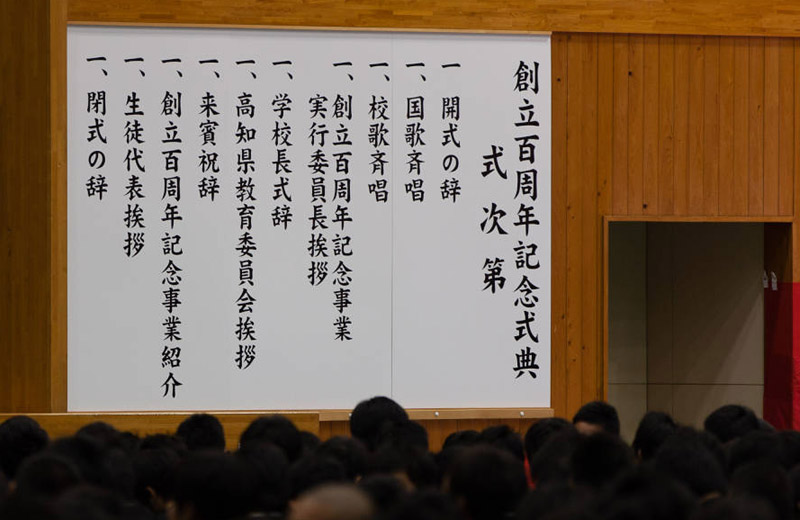 創立百周年記念式典
式次第
一 開式の辞
一、国歌斉唱
一、校歌斉唱
一、創立百周年記念事業
実行委員長挨拶
一、学校長式辞
一、高知県教育委員会挨拶
一、来賓祝辞
一、創立百周年記念事業紹介
一、生徒代表挨拶
一、閉式の辞